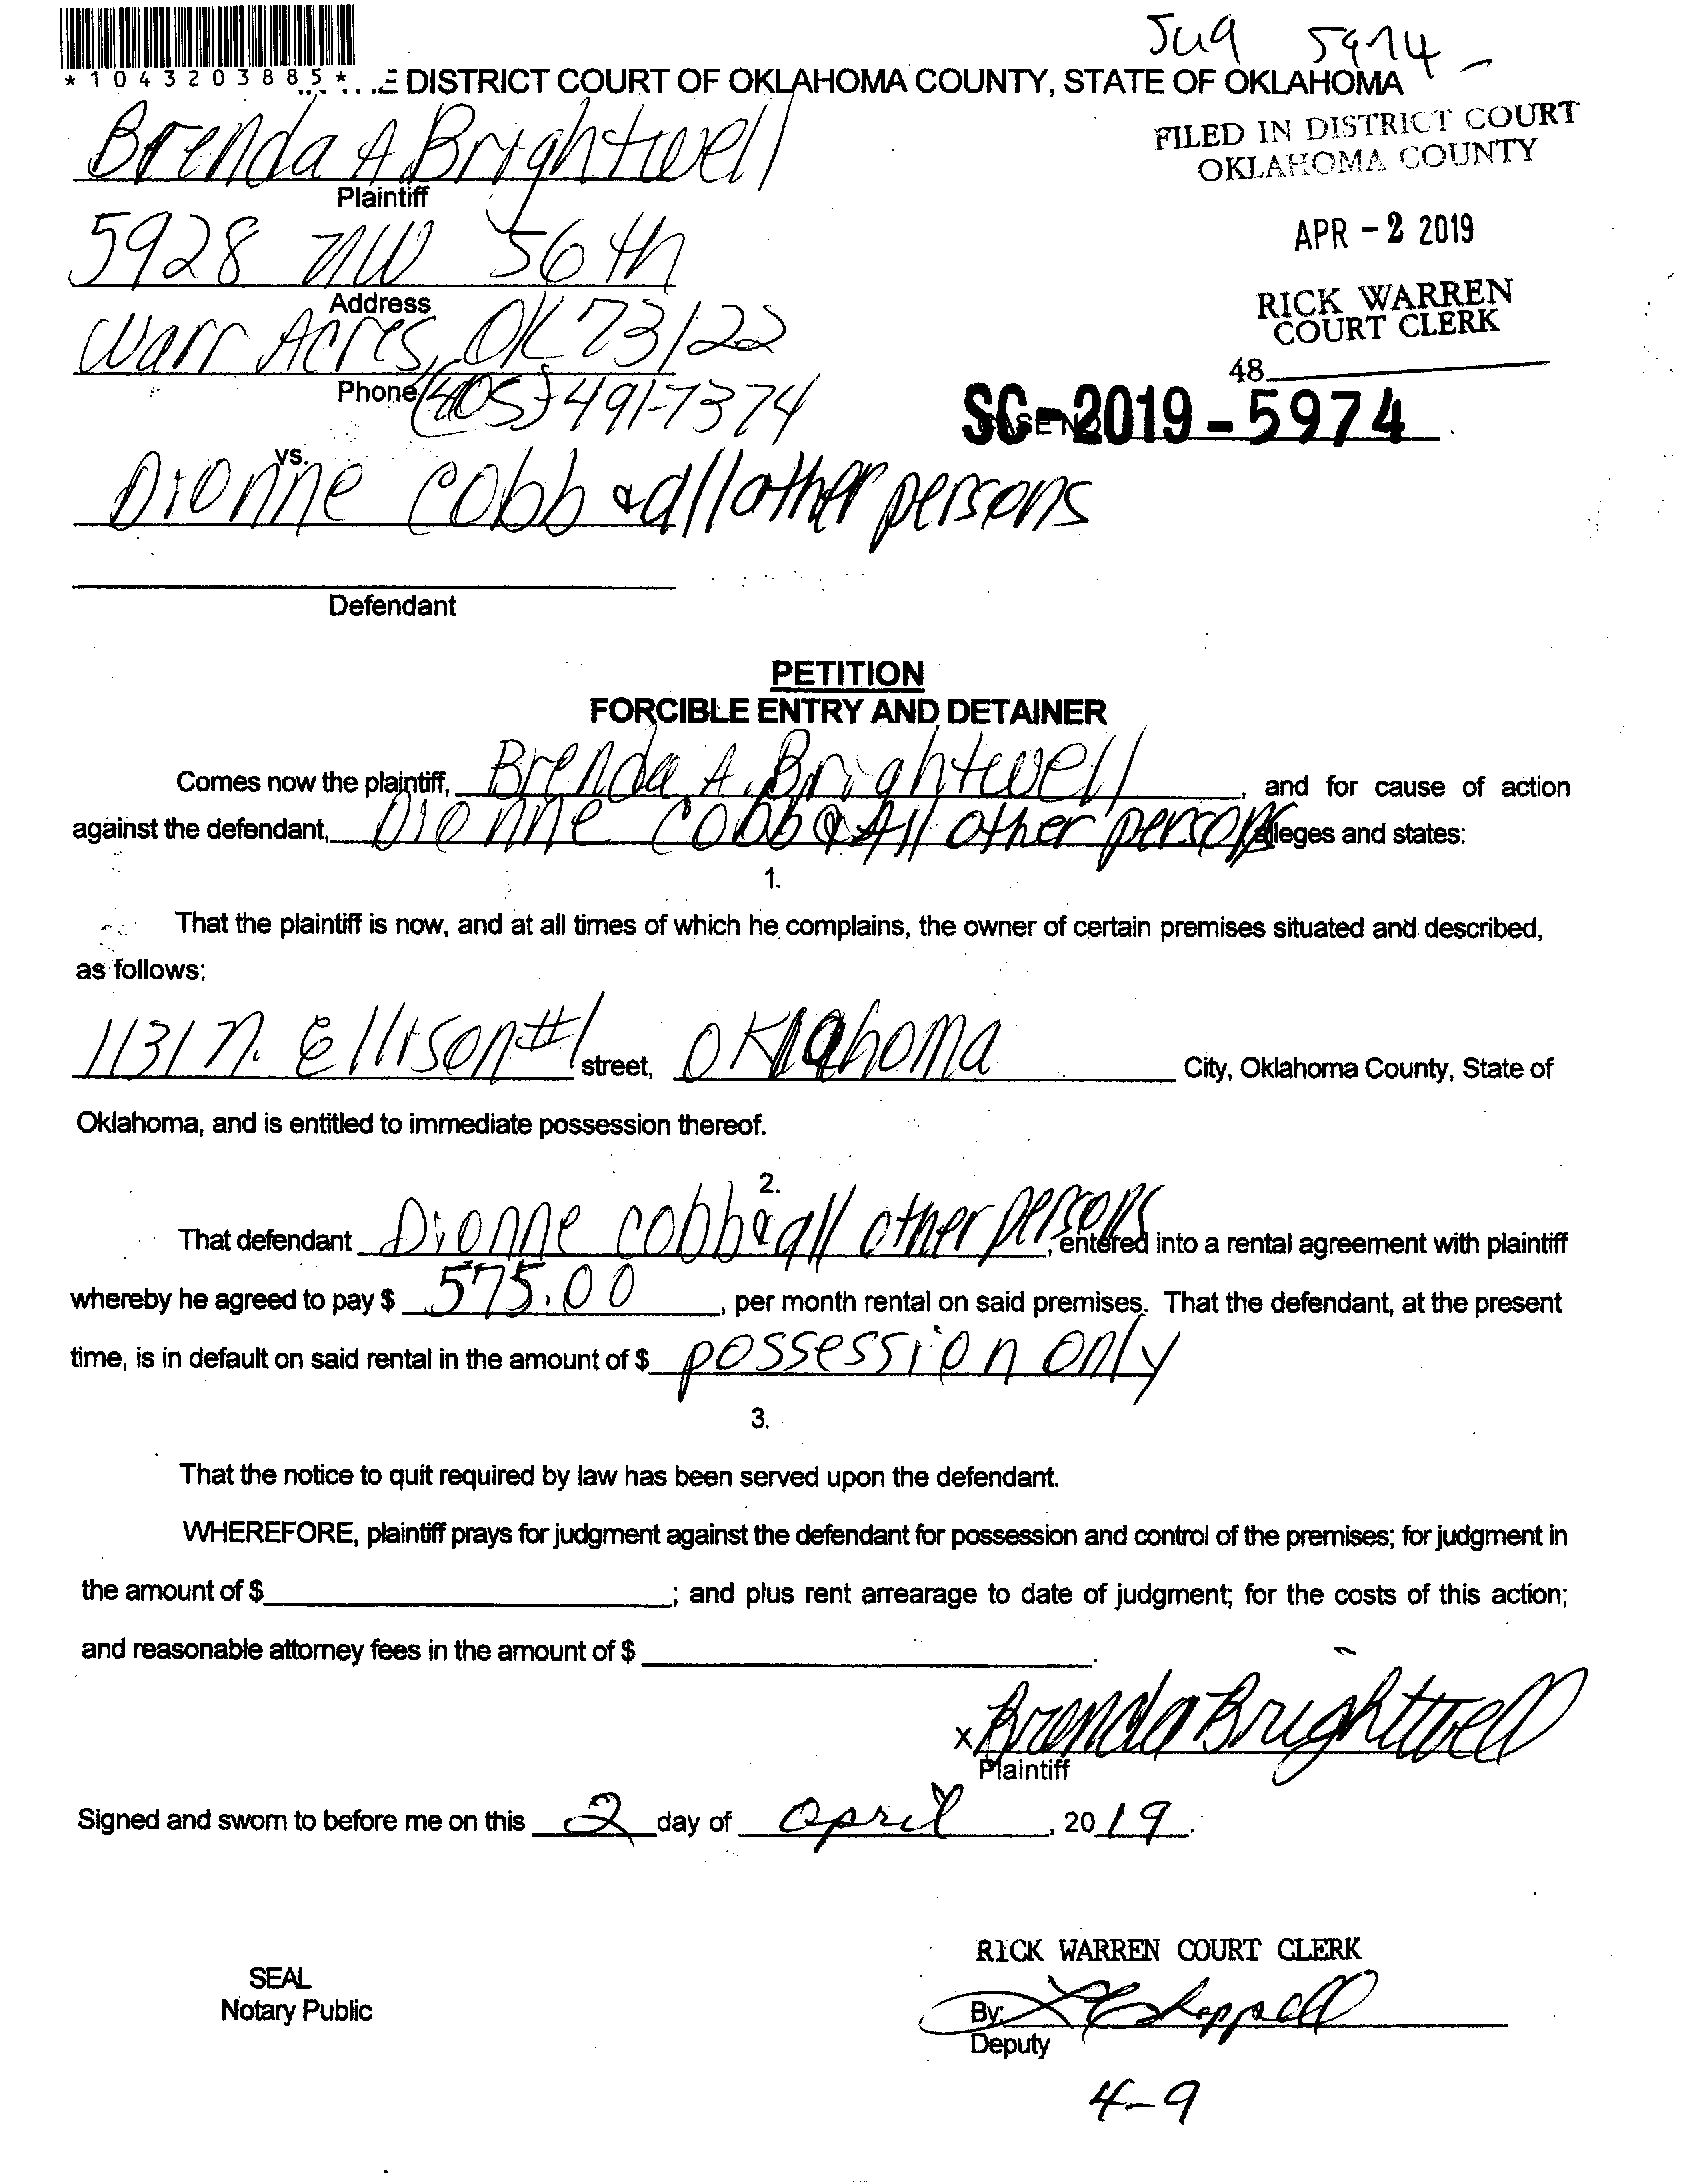 Jug 5974
*1043203885* DISTRICT COURT OF OKLAHOMA COUNTY, STATE OF OKLAHOMA
FILED IN DISTRICT COURT
OKLAHOMA COUNTY
Brenda A Brightwell
Plaintiff
APR - 2 2019
5928 NW 56th
Address
RICK WARREN
COURT CLERK
Warr Acres, OK 73122
48
Phone (405) 491-7374
SC-2019-5974
vs.
Dionne Cobb & all other persons
Defendant
PETITION
FORCIBLE ENTRY AND DETAINER
Comes now the plaintiff, Brenda A. Brightwell, and for cause of action
against the defendant, Dionne Cobb & All other persons alleges and states:
1.
That the plaintiff is now, and at all times of which he complains, the owner of certain premises situated and described,
as follows:
1131 N. Ellison #1 street, Oklahoma City, Oklahoma County, State of
Oklahoma, and is entitled to immediate possession thereof.
2.
That defendant Dionne Cobb & all other persons, entered into a rental agreement with plaintiff
whereby he agreed to pay $ 575.00, per month rental on said premises. That the defendant, at the present
time, is in default on said rental in the amount of $ possession only
3.
That the notice to quit required by law has been served upon the defendant.
WHEREFORE, plaintiff prays for judgment against the defendant for possession and control of the premises; for judgment in
the amount of $ ; and plus rent arrearage to date of judgment; for the costs of this action;
and reasonable attorney fees in the amount of $ .
x Brenda Brightwell
Plaintiff
Signed and sworn to before me on this 2 day of April, 2019.
RICK WARREN COURT CLERK
SEAL
Notary Public
By:
Deputy
4-9